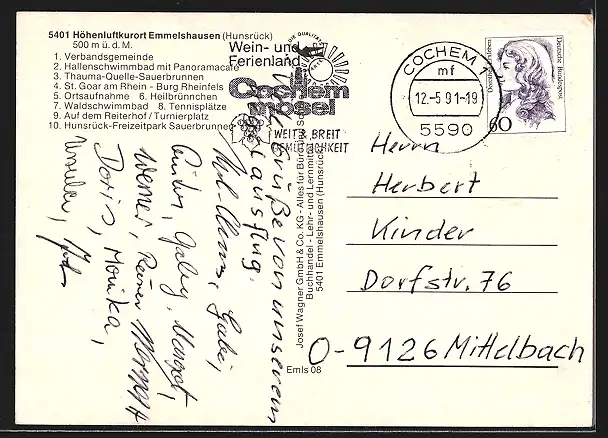 5401 Höhenluftkurort Emmelshausen (Hunsrück)
500 m ü. d. M.
1. Verbandsgemeinde
2. Hallenschwimmbad mit Panoramacafé
3. Thauma-Quelle-Sauerbrunnen
4. St. Goar am Rhein - Burg Rheinfels
5. Ortsaufnahme 6. Heilbrünnchen
7. Waldschwimmbad 8. Tennisplätze
9. Auf dem Reiterhof / Turnierplatz
10. Hunsrück-Freizeitpark Sauerbrunnen
Wein- und
Ferienland
Cochem
mosel
WEIT & BREIT
GEMÜTLICHKEIT
DIE QUALITÄT
COCHEM
mf
12.-5.91-19
5590
Deutsche Bundespost
60
Grüße von unserem
ausflug.
Gabi,
Gaby, Margot,
Werner, Reiner
Doris, Monika,
Josef Wagner GmbH & Co. KG - Alles für Büro und
Buchhandel - Lehr- und Lernmittel
5401 Emmelshausen (Hunsrück)
Emls 08
Herrn
Herbert
Kinder
Dorfstr. 76
O-9126 Mittelbach